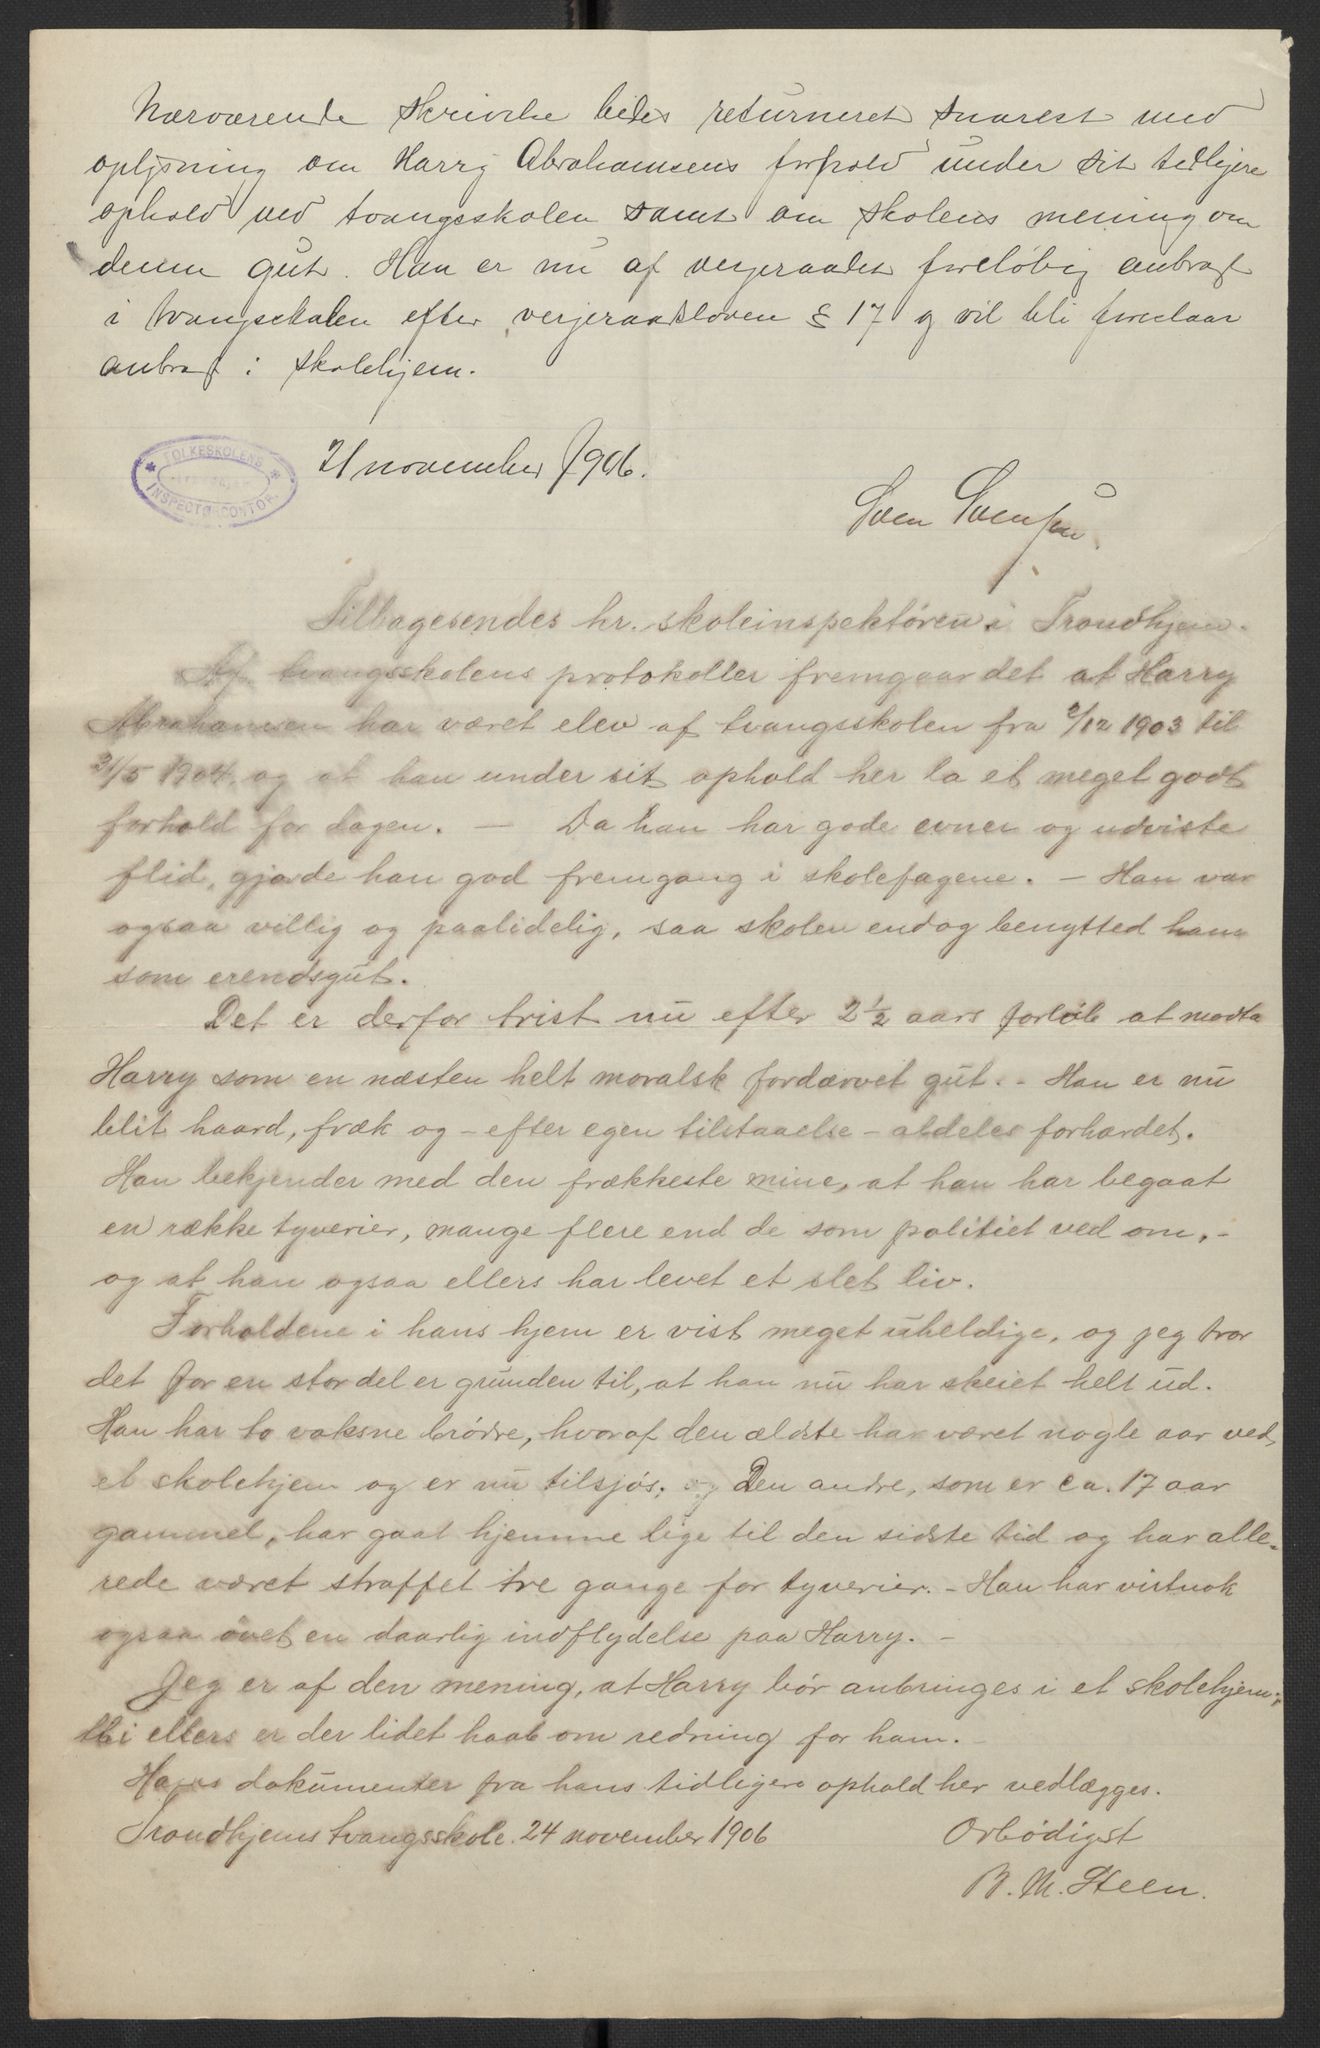 Nærværende skrivelse bedes returneret snarest med
oplysning om Harry Abrahamsens forhold under sit tidligere
ophold ved tvangsskolen samt om skolens mening om
denne gut. Han er nu af vergeraadet foreløbig anbragt
i tvangsskolen efter vergeraadsloven § 17 og vil bli foreslaat
anbragt i skolehjem.
FOLKESKOLENS
INSPECTØRCONTOR.
21 november 1906.
Sven Svensen
Tilbagesendes hr. skoleinspektøren i Trondhjem.
Af tvangsskolens protokoller fremgaar det at Harry
Abrahamsen har været elev af tvangsskolen fra 2/12 1903 til
31/5 1904, og at han under sit ophold her la et meget godt
forhold for dagen. — Da han har gode evner og udviste
flid, gjorde han god fremgang i skolefagene. — Han var
ogsaa villig og paalidelig, saa skolen endog benytted ham
som erendsgut.
Det er derfor trist nu efter 2½ aars forløb at modta
Harry som en næsten helt moralsk fordærvet gut. - Han er nu
blit haard, fræk og - efter egen tilstaaelse - aldeles forhærdet.
Han bekjender med den frækkeste mine, at han har begaat
en række tyverier, mange flere end de som politiet ved om, -
og at han ogsaa ellers har levet et slet liv.
Forholdene i hans hjem er vist meget uheldige, og jeg tror
det for en stor del er grunden til, at han nu har skeiet helt ud.
Han har to voksne brødre, hvoraf den ældste har været nogle aar ved
et skolehjem og er nu tilsjøs; og Den andre, som er ca. 17 aar
gammel, har gaat hjemme lige til den sidste tid og har alle-
rede været straffet tre gange for tyverier. - Han har vistnok
ogsaa øvet en daarlig indflydelse paa Harry. -
Jeg er af den mening, at Harry bør anbringes i et skolehjem;
thi ellers er der lidet haab om redning for ham. -
Hans dokumenter fra hans tidligere ophold her vedlægges.
Trondhjems tvangsskole. 24 november 1906
Ærbødigst
B. M. Steen.